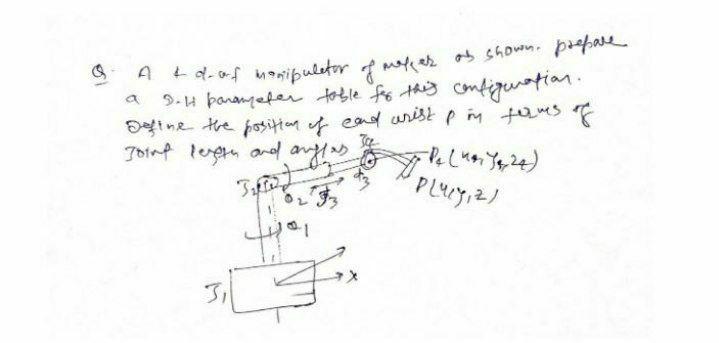 Q. A 4 d.o.f manipulator of as shown. prepare
a D.H parameter table for this configuration.
Define the position of end wrist P in terms of
Joint length and angles
J4
P4 (x4, y4, z4)
J2
θ2
d3
P(x, y, z)
θ1
J1
x